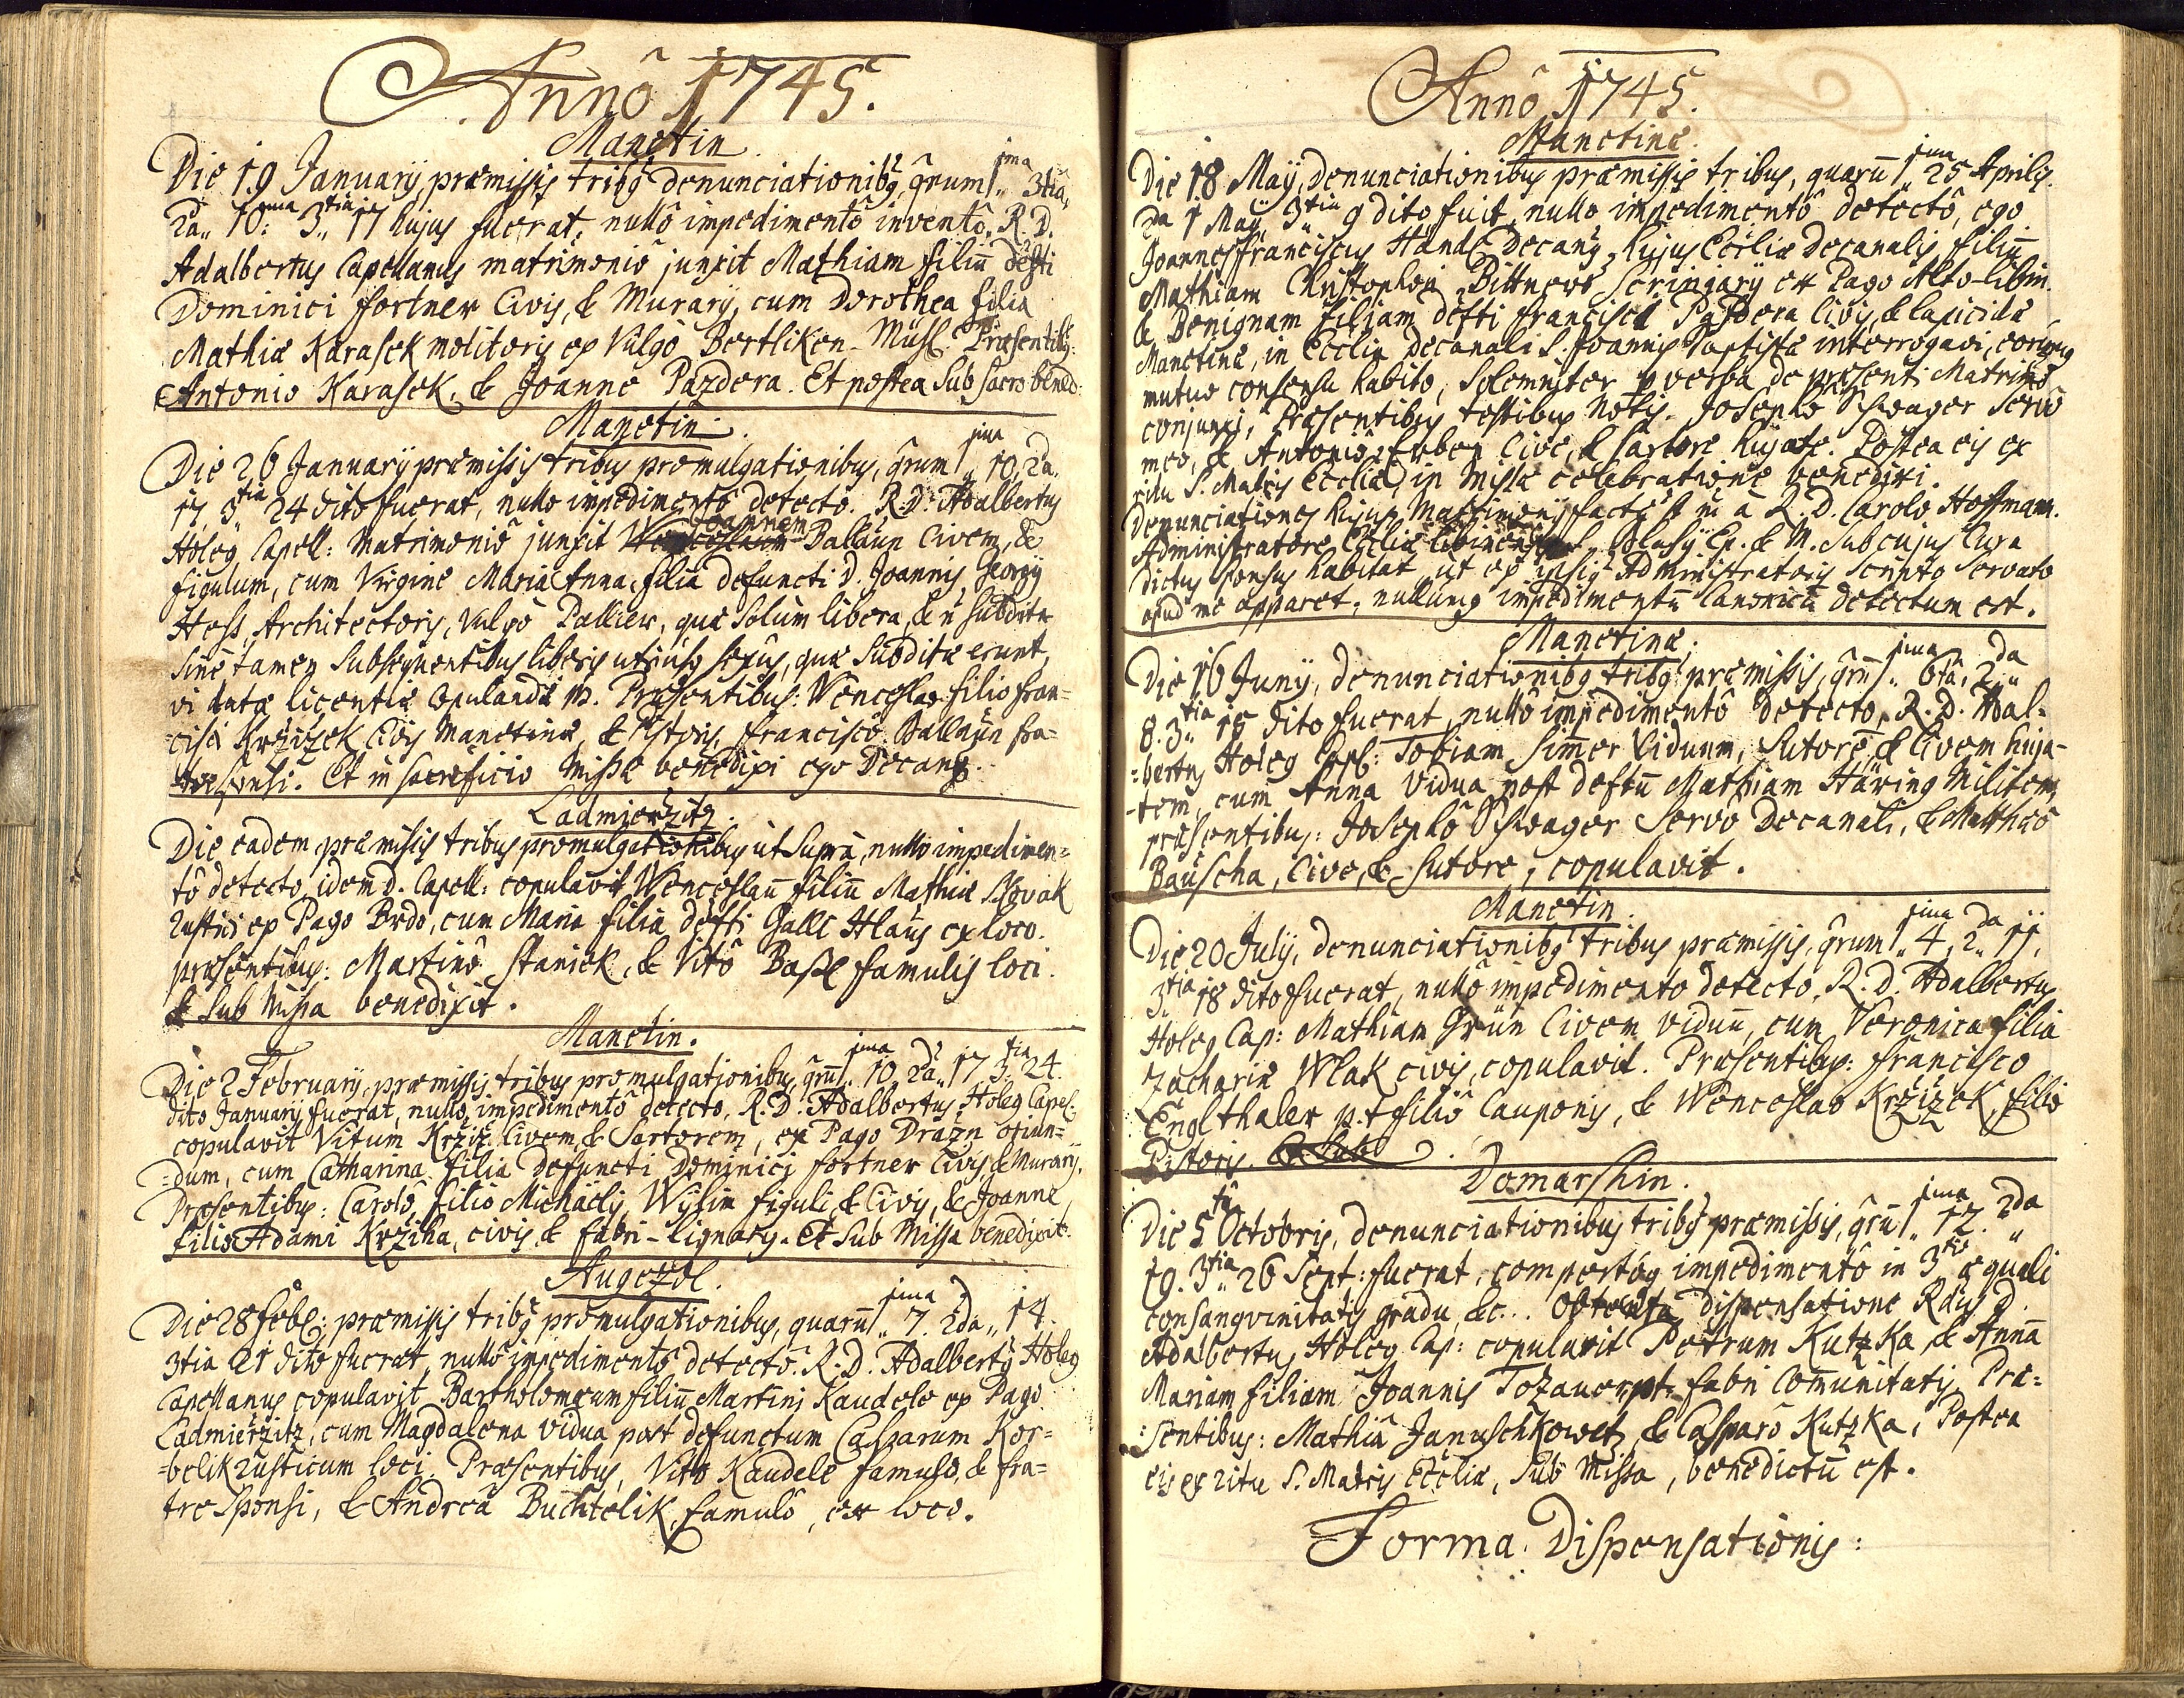 Annô 1745.
Manetin
Die 19 January, præmissis tribq denunciationibq, qrum 1ma 3tia,
2da 10ma 3tia 17 hujus fuerat, nullô impedimentô inventô, R. D.
Adalbertus Capellanus matrimoniô junxit Mathiam filiu defti
Dominici Fortner Civis, & Murary, cum Dorothea filia
Mathiæ Karasek molitoris ex Vulgò Bertliken-Mühl. Præsentib9
Antonio Karasek, & Joanne Pazdera. Et postea Sub Sacro bened.
Manetin.
Die 26 January præmissis tribus promulgationibus, qrum 1ma 10, 2da
17, 3tia 24 dito fuerat, nullo impedimentô detecto. R. D. Adalbertus
Holeg Capell: Matrimoniô junxit Joannem Ballaun Civem, &
figulum, cum Virgine Maria Anna, filia defuncti D. Joannis Georgij
Hess, Architectoris, Vulgò Pallier, quæ Solùm libera, & n Subdita
sine tamen Subsequentibus liberis utriusq sexûs, quæ Subditæ erunt
vi datæ licentiæ Copulandi M. Præsentibus: Wenceslao filio Fran=
=cisci Kržižek Civis Manetinæ, & Pistoris, Franciscô Ballaun fra=
tre Sponsi. Et in Sacrificio Missæ benedixi ego Decanq.
Ladmieržitz.
Die eadem, præmissis tribus promulgationibus ut Supra, nullo impedimen=
tô detecto, idem D. Capell: copulavit Wenceslau filiu Mathiæ Slovak
Rustici ex Pago Brdo, cum Maria filia defti Galli Hlaus ex loco.
præsentibus: Martinô Staniek, & Vitô Baße famulis loci.
& Sub Missa benedixit.
Manetin.
Die 2 February, præmissis tribus promulgationibus, qru 1ma 10, 2da 17 3tia 24.
dito January fuerat, nullo impedimentô detecto, R. D. Adalbertus Holeg Capel:
copulavit Vitum Kržiž Civem & Sartorem, ex Pago Dražn oriun=
=dum, cum Catharina filia Defuncti Dominici Fortner Civis & Murary.
Præsentibus: Carolô, filiô Michaëlis Wylim figuli, & Civis, & Joanne
filio Adami Kržiha, civis & fabri-lignary. Et Sub Missa benedixit.
Augezdl.
Die 28 Febr: præmissis tribq promulgationibus, quaru 1ma 7. 2da 14.
3tia 21 dito fuerat, nullô impedimentô detectô. R. D. Adalbertq Holeg
Capellanus copulavit Bartholomæum filiu Martini Kaudele ex Pago
Ladmieržitz, cum Magdalena vidua post defunctum Casparum Kor=
=belik Rusticum loci. Præsentibus, Vitô Kaudele famulo, & fra=
tre Sponsi, & Andreâ Buchtelik, famulô, ex loco.
Annô 1745.
Manetinæ.
Die 18 May, denunciationibus præmissis tribus, quaru 1ma 25 Aprilis.
2da 1 May, 3tia 9 dito fuit, nullo impedimentô detectô, ego
Joannes Franciscus Händl Decanq, hujus Eccliæ Decanalis filiu
Mathiam Christophori Bittner Scriniary ex Pago Alto-libin.
& Benignam filiam defti Francisci Pazdera Civis, & lapicidæ
Manetinæ, in Ecclia Decanali S. Joannis Baptistæ interrogavi, eorumq
mutuo consensu habito, Solemniter p verba de præsenti Matrimô
conjunxi, Præsentibus testibus Notis. Josephô Schwager Servô
meo, & Antoniô Erben Cive, & Sartore hujate. Postea eis ex
ritu S. Matris Eccliæ, in Missæ celebratione benedixi.
Denunciationes hujus Matrimony factæ st in a R. D. Carolo Hoffmann.
Administratore Eccliæ Libinensis S. Blasy Ep. & M. Sub cujus Cura
dictus Sponsus habitat, ut ex ipsiq Administratoris Scripto Servato
apud me apparet, nullumq impedimentu Canonicu detectum est.
Manetinæ.
Die 16 Juny, denunciationibq tribq præmissis, qru 1ma 6ta, 2da
8. 3tia 13 dito fuerat, nullô impedimentô detecto, R. D. Adal=
=bertus Holeg Capl: Tobiam Simer Viduum, Sutore, & Civem huja-
-tem, cum Anna Vidua post deftu Mathiam Häring Militem,
præsentibus: Josephô Schwager Servô Decanali, & Matthæô
Bauscha, Cive, & Sutore, copulavit.
Manetin.
Die 20 July, denunciationibq tribus præmissis, qrum 1ma 4, 2da 11,
3tia 18 dito fuerat, nullô impedimento detecto, R. D. Adalbertus
Holeg Cap: Mathiam Grün Civem viduu, cum Veronica filia
Zachariæ Wlak civis, copulavit. Præsentibus: Francisco
Englthaler p. t. filiô Cauponis, & Wenceslao Kržižek, filio
Pistoris. & Sub
Domarshin.
Die 5tâ Octobris, denunciationibus tribq præmissis, qru 1ma 12. 2da
19. 3tia 26 Sept: fuerat, compertôq impedimentô in 3tio æquali
consangvinitatis gradu &c.. Obtenta dispensatione Rdus D.
Adalbertus Holeg Cap: copulavit Petrum Kutzka & Anna
Mariam filiam Joannis Tozauer, pt. fabri Comunitatis. Præ=
=sentibus: Mathiâ Januschkowetz & Casparô Kutzka, Postea
eis ex ritu S. Matris Eccliæ, Sub Missa, benedictu est.
Forma Dispensationis: